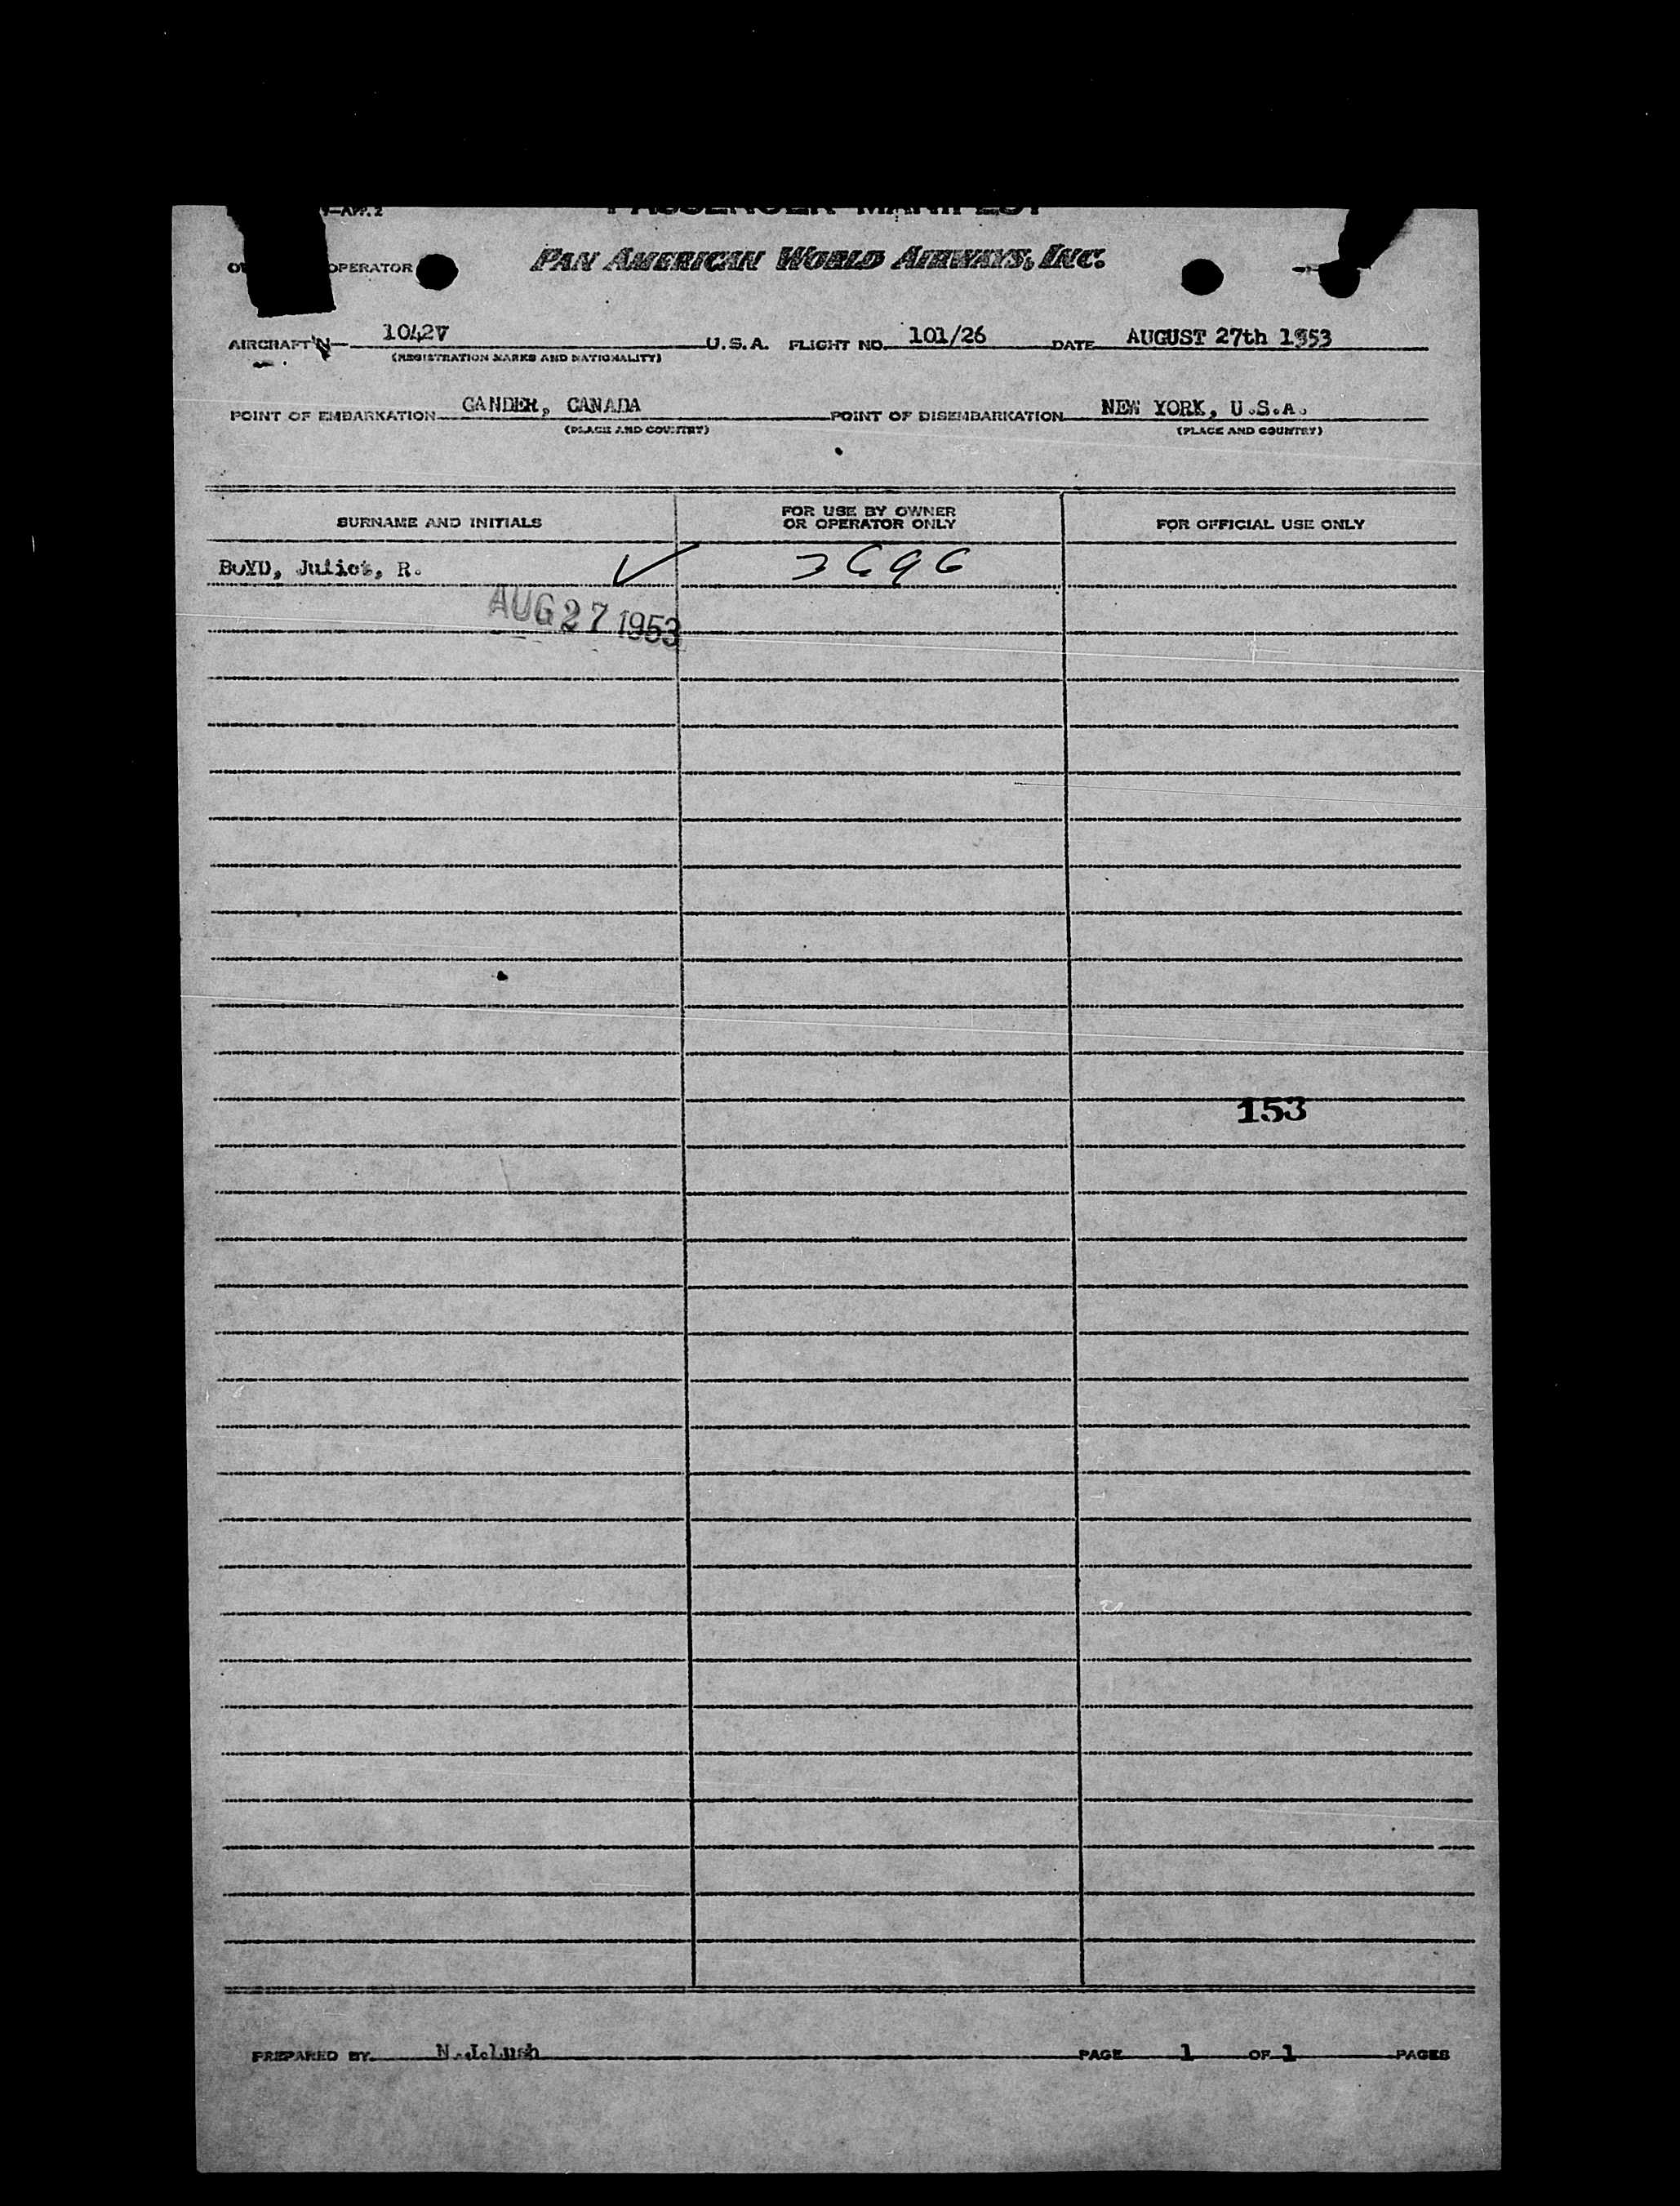 PASSENGER MANIFEST
OPERATOR PAN AMERICAN WORLD AIRWAYS, INC.
AIRCRAFT N— 1042V U.S.A. FLIGHT NO. 101/26 DATE AUGUST 27th 1953
(REGISTRATION MARKS AND NATIONALITY)
POINT OF EMBARKATION GANDER, CANADA POINT OF DISEMBARKATION NEW YORK, U.S.A.
(PLACE AND COUNTRY) (PLACE AND COUNTRY)
SURNAME AND INITIALS FOR USE BY OWNER OR OPERATOR ONLY FOR OFFICIAL USE ONLY
BOYD, Juliet, R. ✓
AUG 27 1953
153
PREPARED BY N.J.Lush PAGE 1 OF 1 PAGES